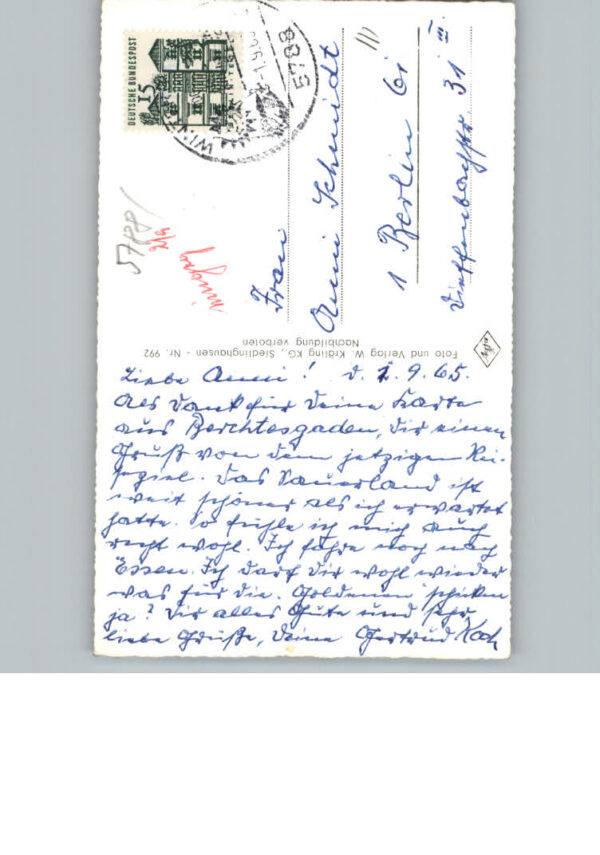 Liebe Anni! d. 1.9.65.
Als Dank für Deine Karte
aus Berchtesgaden, Dir einen
Gruß von dem jetzigen Rei-
seziel. Das Sauerland ist
weit schöner als ich erwartet
hatte. So fühle ich mich auch
recht wohl. Ich fahre noch nach
Essen. Ich darf Dir wohl wieder
was für die Goldenen schicken
ja? Dir alles Gute und sehr
liebe Grüße, Deine Gertrud Koch
Foto und Verlag W. Kräling KG., Siedlinghausen - Nr. 992
Nachbildung verboten
Frau
Anni Schmidt
1 Berlin 61
Dieffenbachstr 31 III.
DEUTSCHE BUNDESPOST
15
5788
5788